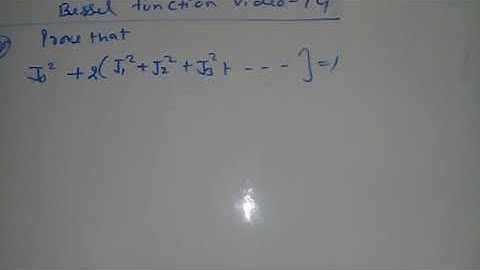 Bessel function Video-14
Prove that
J₀² + 2(J₁² + J₂² + J₃² + - - - ] = 1